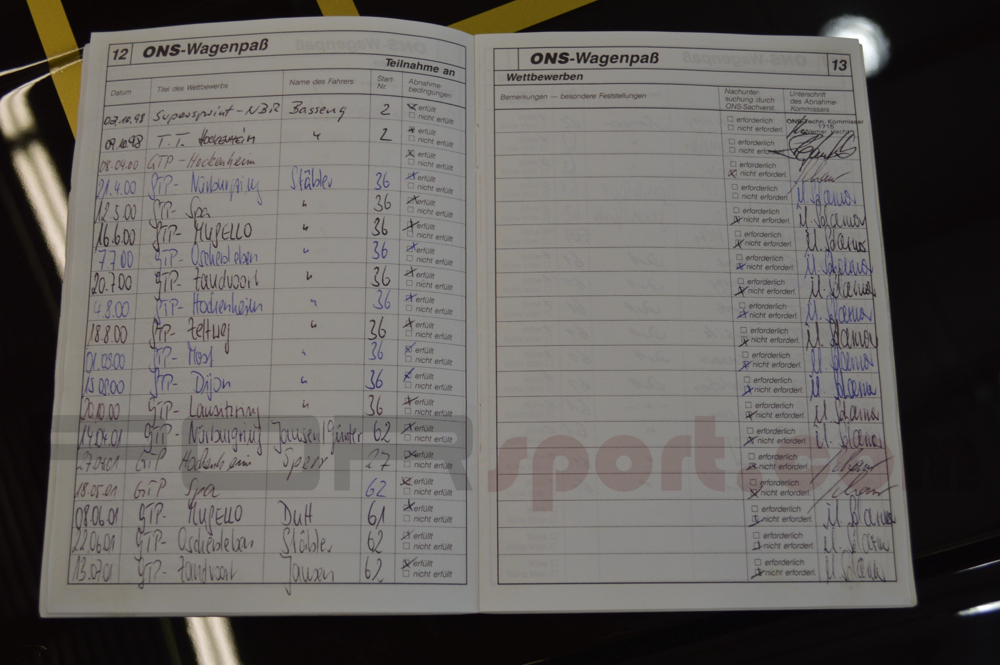 12 ONS-Wagenpaß
Teilnahme an
Datum Titel des Wettbewerbs Name des Fahrers Start-Nr. Abnahmebedingungen
02.10.98 Supersprint-NBR Basseng 2 erfüllt
nicht erfüllt
09.10.98 T.T. Hockenheim " 2 erfüllt
nicht erfüllt
08.04.00 GTP-Hockenheim erfüllt
nicht erfüllt
21.4.00 GTP- Nürburgring Stäbler 36 erfüllt
nicht erfüllt
12.5.00 GTP- Spa " 36 erfüllt
nicht erfüllt
16.6.00 GTP- MUGELLO " 36 erfüllt
nicht erfüllt
7.7.00 GTP- Oschersleben " 36 erfüllt
nicht erfüllt
20.7.00 GTP- Zandvoort " 36 erfüllt
nicht erfüllt
4.8.00 GTP- Hockenheim " 36 erfüllt
nicht erfüllt
18.8.00 GTP- Zeltweg " 36 erfüllt
nicht erfüllt
01.09.00 GTP- Most " 36 erfüllt
nicht erfüllt
15.09.00 GTP- Dijon " 36 erfüllt
nicht erfüllt
20.10.00 GTP- Lausitzring " 36 erfüllt
nicht erfüllt
14.04.01 GTP- Nürburgring Jansen/Günter 62 erfüllt
nicht erfüllt
27.04.01 GTP Hockenheim 27 erfüllt
nicht erfüllt
18.05.01 GTP Spa 62 erfüllt
nicht erfüllt
08.06.01 GTP- MUGELLO Dutt 61 erfüllt
nicht erfüllt
22.06.01 GTP- Oschersleben Stäbler 62 erfüllt
nicht erfüllt
13.7.01 GTP- Zandvoort Jansen 62 erfüllt
nicht erfüllt
ONS-Wagenpaß 13
Wettbewerben
Bemerkungen — besondere Feststellungen Nachuntersuchung durch ONS-Sachverst. Unterschrift des Abnahme-Kommissars
erforderlich
nicht erforderl.
erforderlich
nicht erforderl.
erforderlich
nicht erforderl.
erforderlich
nicht erforderl.
erforderlich
nicht erforderl.
erforderlich
nicht erforderl.
erforderlich
nicht erforderl.
erforderlich
nicht erforderl.
erforderlich
nicht erforderl.
erforderlich
nicht erforderl.
erforderlich
nicht erforderl.
erforderlich
nicht erforderl.
erforderlich
nicht erforderl.
erforderlich
nicht erforderl.
erforderlich
nicht erforderl.
erforderlich
nicht erforderl.
erforderlich
nicht erforderl.
erforderlich
nicht erforderl.
erforderlich
nicht erforderl.
sport